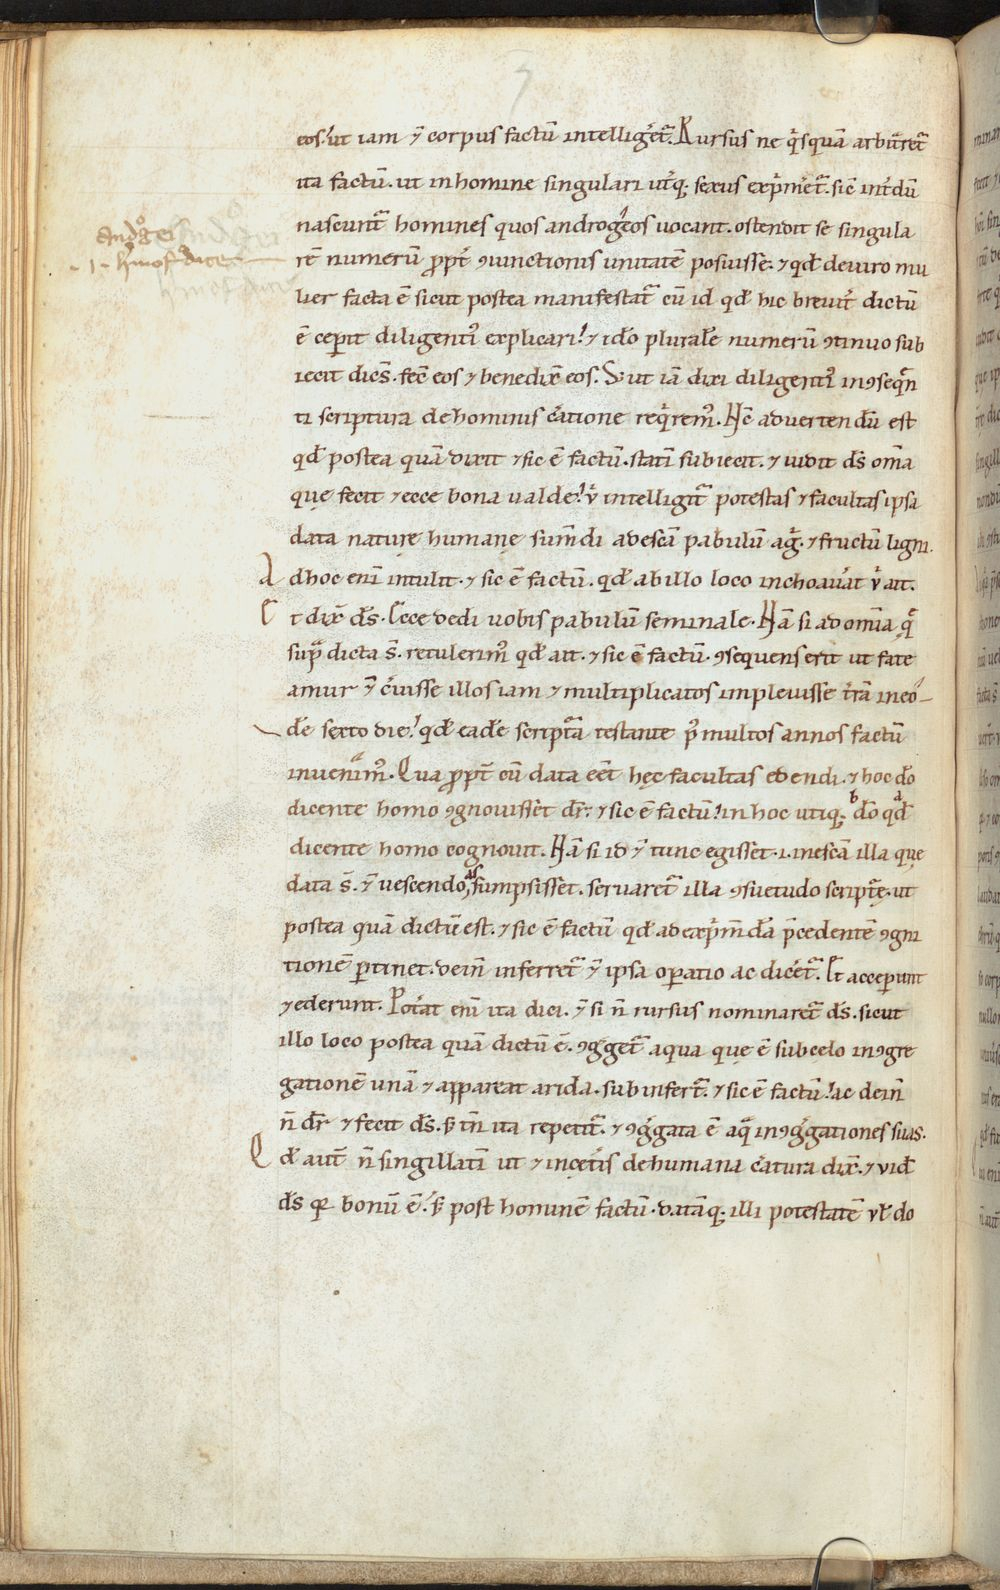 eos. ut iam ⁊ corpus factū intelligeret᷑. Rursus ne qͥsquā arbitraret᷑
ita factū. ut in homine singulari utͥq; sexus exprimeret᷑. sic̄ int̄dū
nascunt᷑ homines quos androgeos uocant. ostendit se singula
rē numerū ꝓpt̄ ꝯiunctionis unitatē posuisse. ⁊ qđ de uiro mu
lier facta ē sicut postea manifestat᷑ cū id qđ hic breuit̄ dictū
ē ceperit diligentiꝰ explicari. ⁊ iđo pluralē numerū ꝯtinuo sub
iecit dicēs. fec̄ eos ⁊ benedix̄ eos. S; ut iā dixi diligentiꝰ in ꝯseqn̄
ti scriptura de hominis creatione reqͥremꝰ. Nc̄ aduertendū est
qđ postea quā dixit ⁊ sic ē factū. statī subiecit. ⁊ uidit dš om̄a
quę fecit ⁊ ecce bona ualde. ubi intelligit᷑ potestas ⁊ facultas ipsa
data naturę humanę sumēdi ad escā pabulū agͥ. ⁊ fructū ligni.
Ad hoc enī intulit. ⁊ sic ē factū. qđ ab illo loco inchoauerat ubi ait.
Et dix̄ dš. Ecce dedi uobis pabulū seminale. Nā si ad om̄ia quę
supͣ dicta š. retulerimꝰ qđ ait. ⁊ sic ē factū. ꝯsequens erit ut fate
amur ⁊ c̄uisse illos iam ⁊ multiplicatos impleuisse t̄rā in eo
dē sexto die. qđ eadē scriptᷓa testante pꝰ multos annos factū
inuenimꝰ. Qua ꝓpt̄ cū data eēt hęc facultas edendi. ⁊ hoc đo
dicente homo ꝯgnouisset dr̄. ⁊ sic ē factū. in hoc utiq; đo qđ
dicente homo cognouit. Nā si id ⁊ tunc egisset .i. in escā illa que
data š. ⁊ uescendo assumpsisset. seruaret᷑ illa ꝯsuetudo scriptᷓę. ut
postea quā dictū est. ⁊ sic ē factū qđ ad exprimendā p̄cedentē ꝯgni
tionē ꝑtinet. dein̄ inferret᷑ ⁊ ipsa oꝑatio ac diceret᷑. Et acceperunt
⁊ ederunt. Poterat enī ita dici. ⁊ si n̄ rursus nominaret᷑ dš. sicut
illo loco postea quā dictū ē. ꝯgreget᷑ aqua quę ē sub celo in ꝯgre
gationē unā ⁊ appareat arida. subinfert᷑. ⁊ sic ē factū. ac dein̄
n̄ dr̄ ⁊ fecit dš. s; tn̄ ita repetit᷑. ⁊ ꝯgregata ē aqͣ in ꝯgregationes suas.
Qđ aut̄ n̄ singillatī ut ⁊ in cet̄is de humana creatura dix̄. ⁊ uid̄
dš qꝛ bonū ē. s; post hominē factū. datāq; illi potestatē uł do